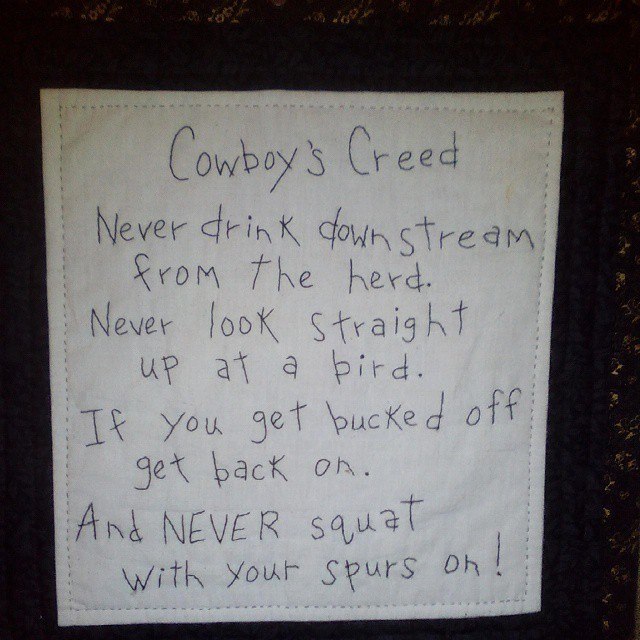 Cowboy's Creed
Never drink downstream
from the herd.
Never look straight
up at a bird.
If you get bucked off
get back on.
And NEVER squat
with your spurs on!